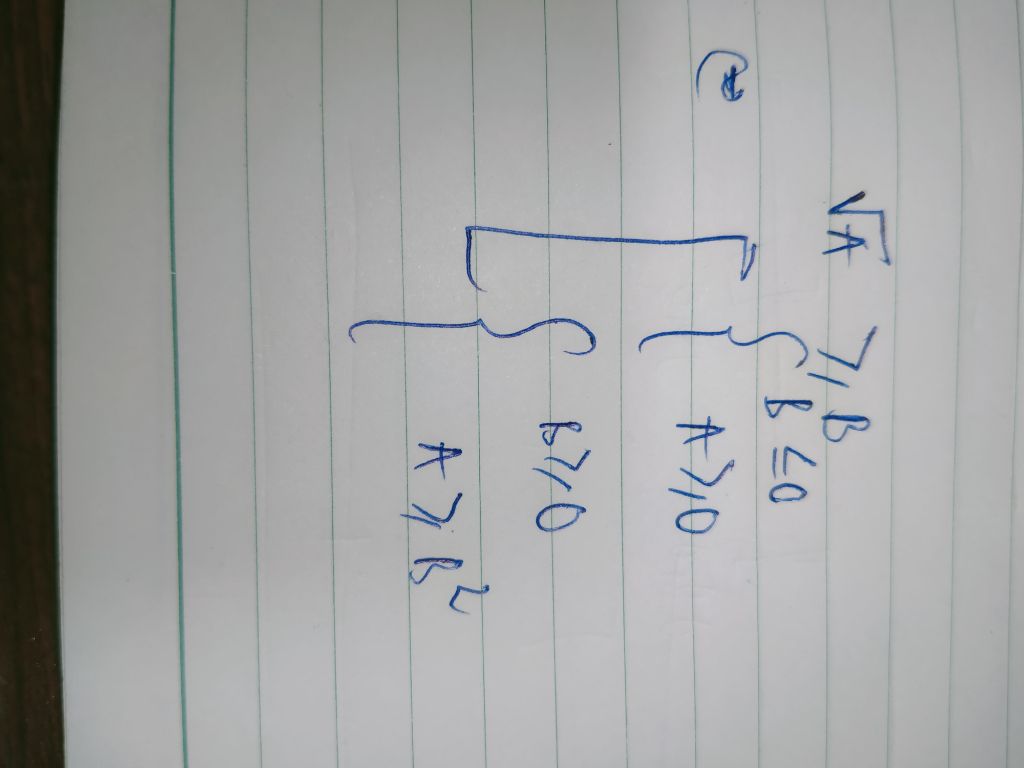 √A ⩾ B
B ≤ 0
A ⩾ 0
B ⩾ 0
A ⩾ B²